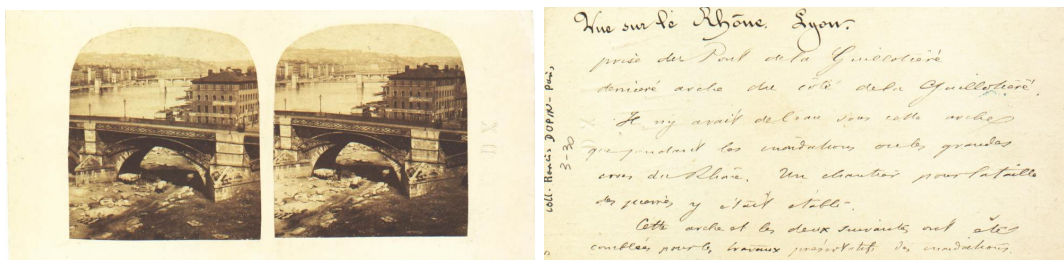 Vue sur le Rhône. Lyon.
prise du Pont de la Guillotière
dernière arche du coté de la Guillotière.
Il n'y avait de l'eau sous cette arche
que pendant les inondations ou les grandes
crues du Rhône. Un chantier pour la taille
des pierres y était établi.
Cette arche et les deux suivantes ont été
comblées pour les travaux préservatifs des inondations.
coll. Francis DUPIN - Paris,
3-30